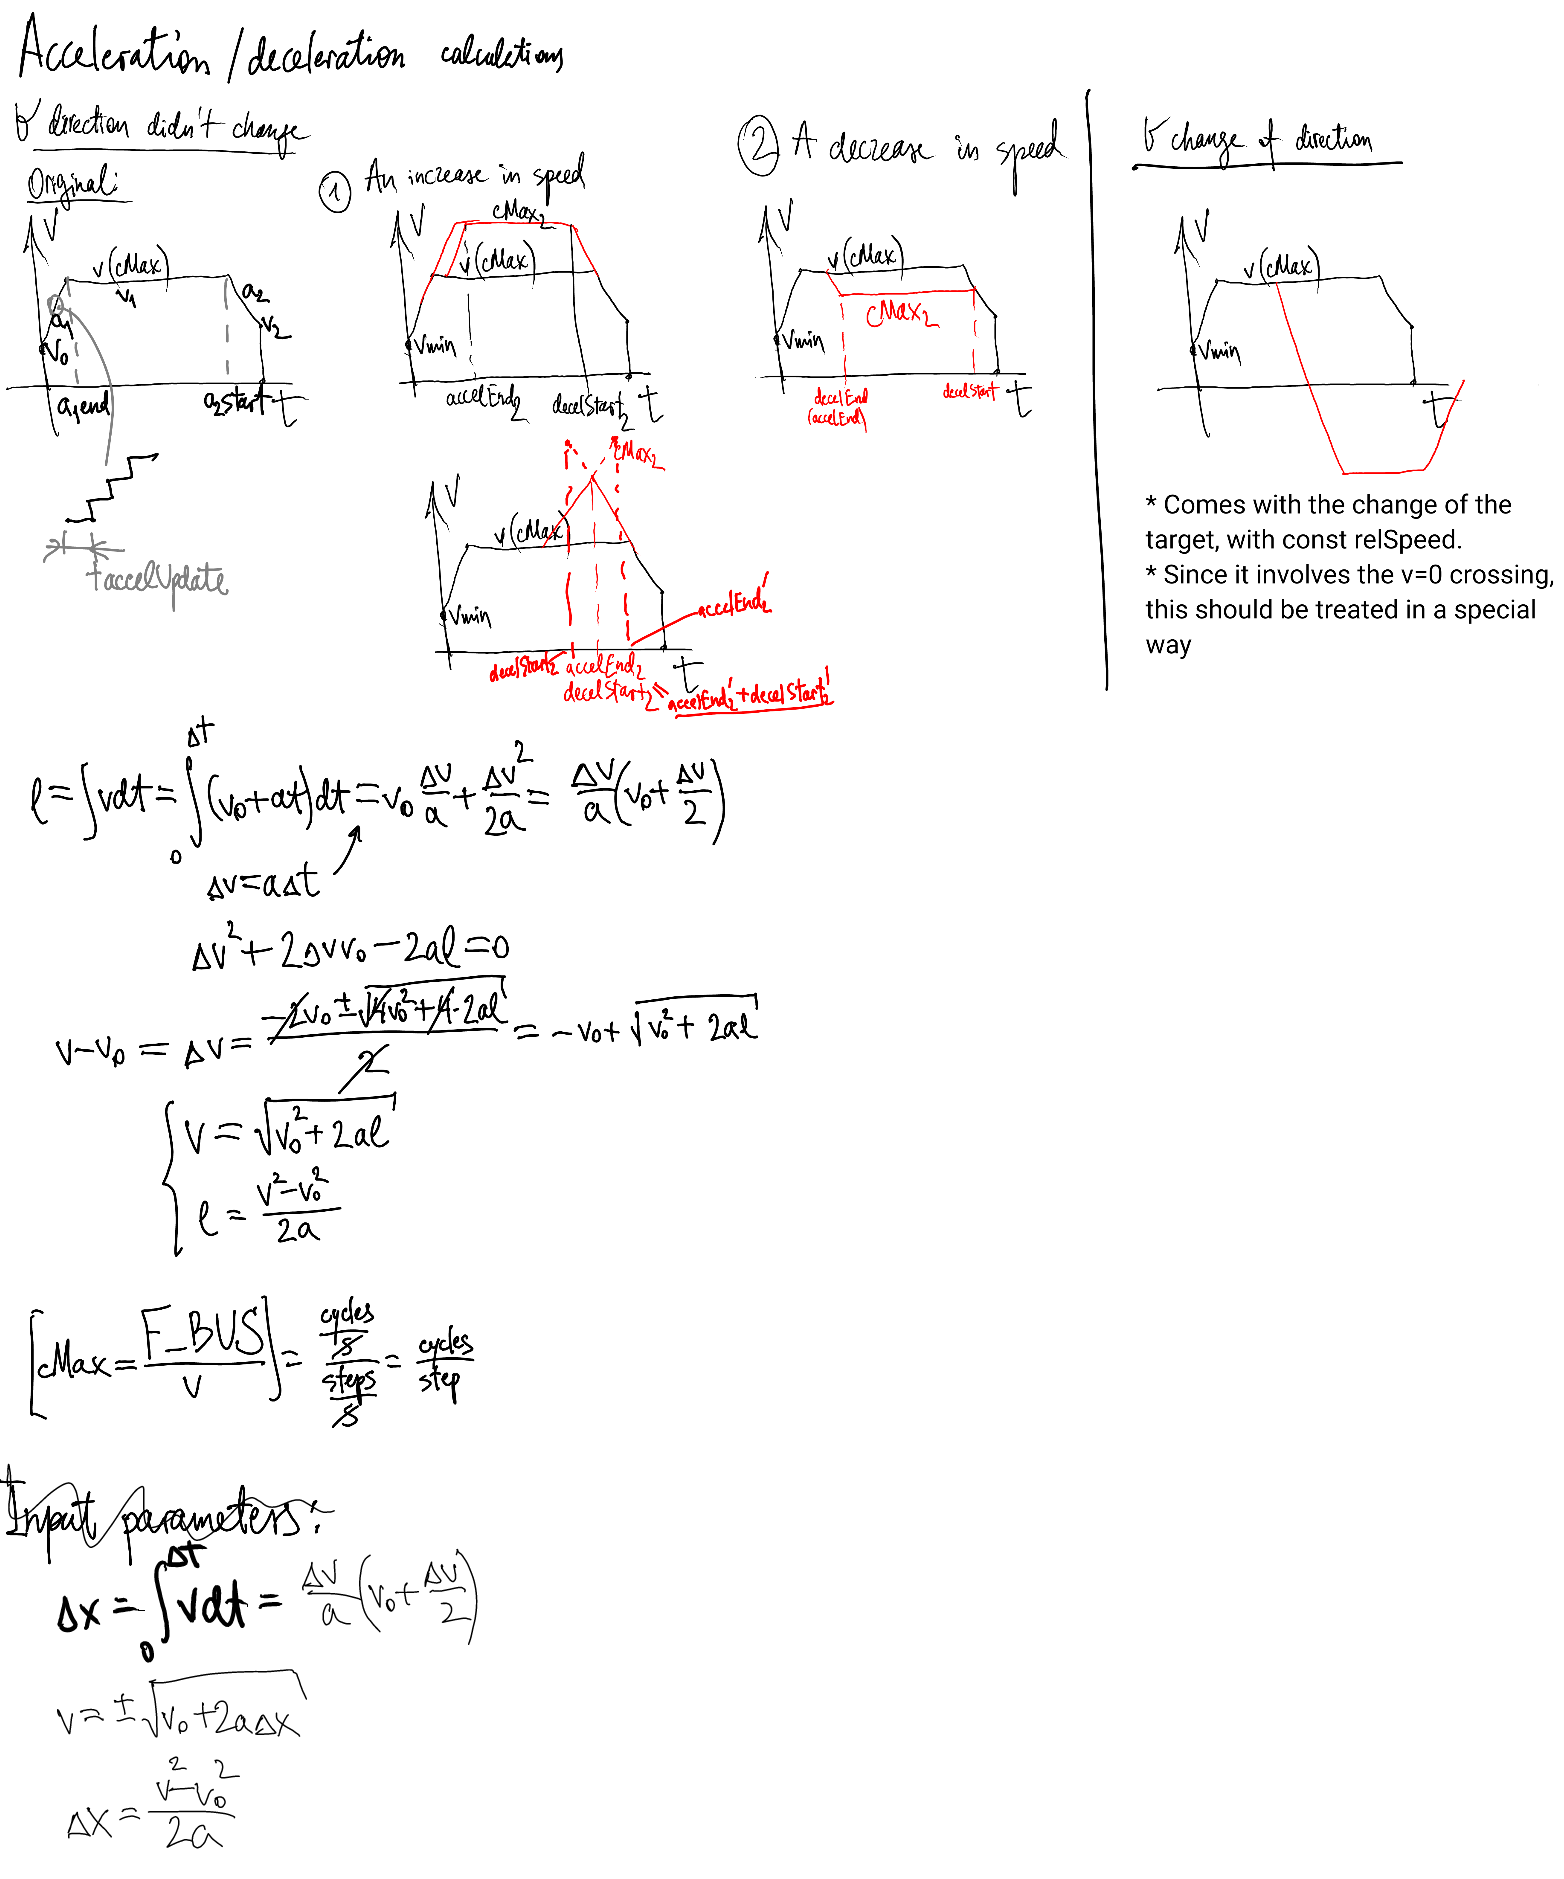 Acceleration / deceleration calculations
v direction didn't change
Original:
V
v(cMax)
v₁
a₁
a₂
v₀
v₂
a₁end
a₂start
t
taccelUpdate
① An increase in speed
V
cMax₂
v(cMax)
Vmin
accelEnd₂
decelStart₂
t
V
cMax₂
v(cMax)
Vmin
accelEnd₂'
decelStart₂' accelEnd₂
decelStart₂
t
accelEnd₂'+decelStart₂'
② A decrease in speed
V
v(cMax)
cMax₂
Vmin
decelEnd
(accelEnd)
decelStart
t
v change of direction
V
v(cMax)
Vmin
t
* Comes with the change of the
target, with const relSpeed.
* Since it involves the v=0 crossing,
this should be treated in a special
way
ℓ = ∫vdt = ∫₀^Δt (v₀+at)dt = v₀ Δv/a + Δv²/2a = Δv/a (v₀ + Δv/2)
Δv=aΔt
Δv² + 2Δvv₀ − 2aℓ = 0
v−v₀ = Δv = (−2v₀ ± √(4v₀²+4·2aℓ))/2 = −v₀ + √(v₀² + 2aℓ)
v = √(v₀² + 2aℓ)
ℓ = (v²−v₀²)/2a
[cMax = F_BUS/v] = (cycles/s)/(steps/s) = cycles/step
Input parameters:
Δx = ∫₀^Δt vdt = Δv/a (v₀ + Δv/2)
v = ±√(v₀+2aΔx)
Δx = (v²−v₀²)/2a